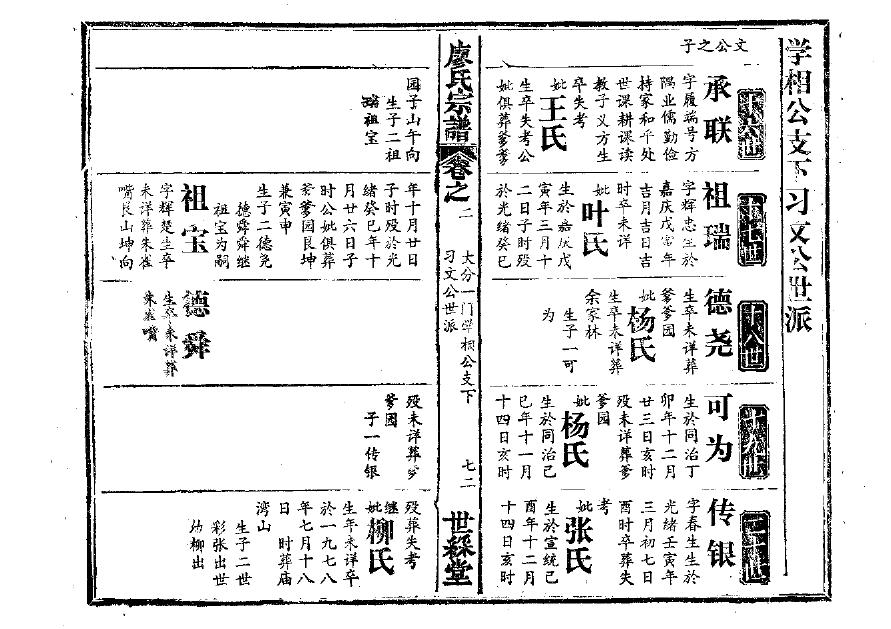 学相公支下习文公世派
十六世
文公之子
承联
字履端号方
隅业儒勤俭
持家和平处
世课耕课读
教子义方生
卒失考
妣王氏
生卒失考公
妣俱葬爹爹
园子山午向
生子二祖
瑞祖宝
十七世
祖瑞
字辉忠生於
嘉庆戊寅年
吉月吉日吉
时卒未详
妣叶氏
生於嘉庆戊
寅年三月十
二日子时殁
於光绪癸巳
年十月廿日
子时殁於光
绪癸巳年十
月廿六日子
时公妣俱葬
爹爹园艮坤
兼寅申
生子二德尧
德舜舜继
祖宝为嗣
祖宝
字辉楚生卒
未详葬朱雀
嘴艮山坤向
十八世
德尧
生卒未详葬
爹爹园
妣杨氏
生卒未详葬
余家林
生子一可
为
德舜
生卒未详葬
朱雀嘴
十九世
可为
生於同治丁
卯年十二月
廿三日亥时
殁未详葬爹
爹园
妣杨氏
生於同治己
巳年十一月
十四日亥时
殁未详葬爹
爹园
子一传银
二十世
传银
字春生生於
光绪壬寅年
三月初七日
酉时卒葬失
考
妣张氏
生於宣统己
酉年十二月
十四日亥时
殁葬失考
继妣柳氏
生年未详卒
於一九七八
年七月十八
日 时葬庙
湾山
生子二世
彩张出世
柳出
廖氏宗譜
卷之二
大分一门学相公支下
习文公世派
七二
世綵堂